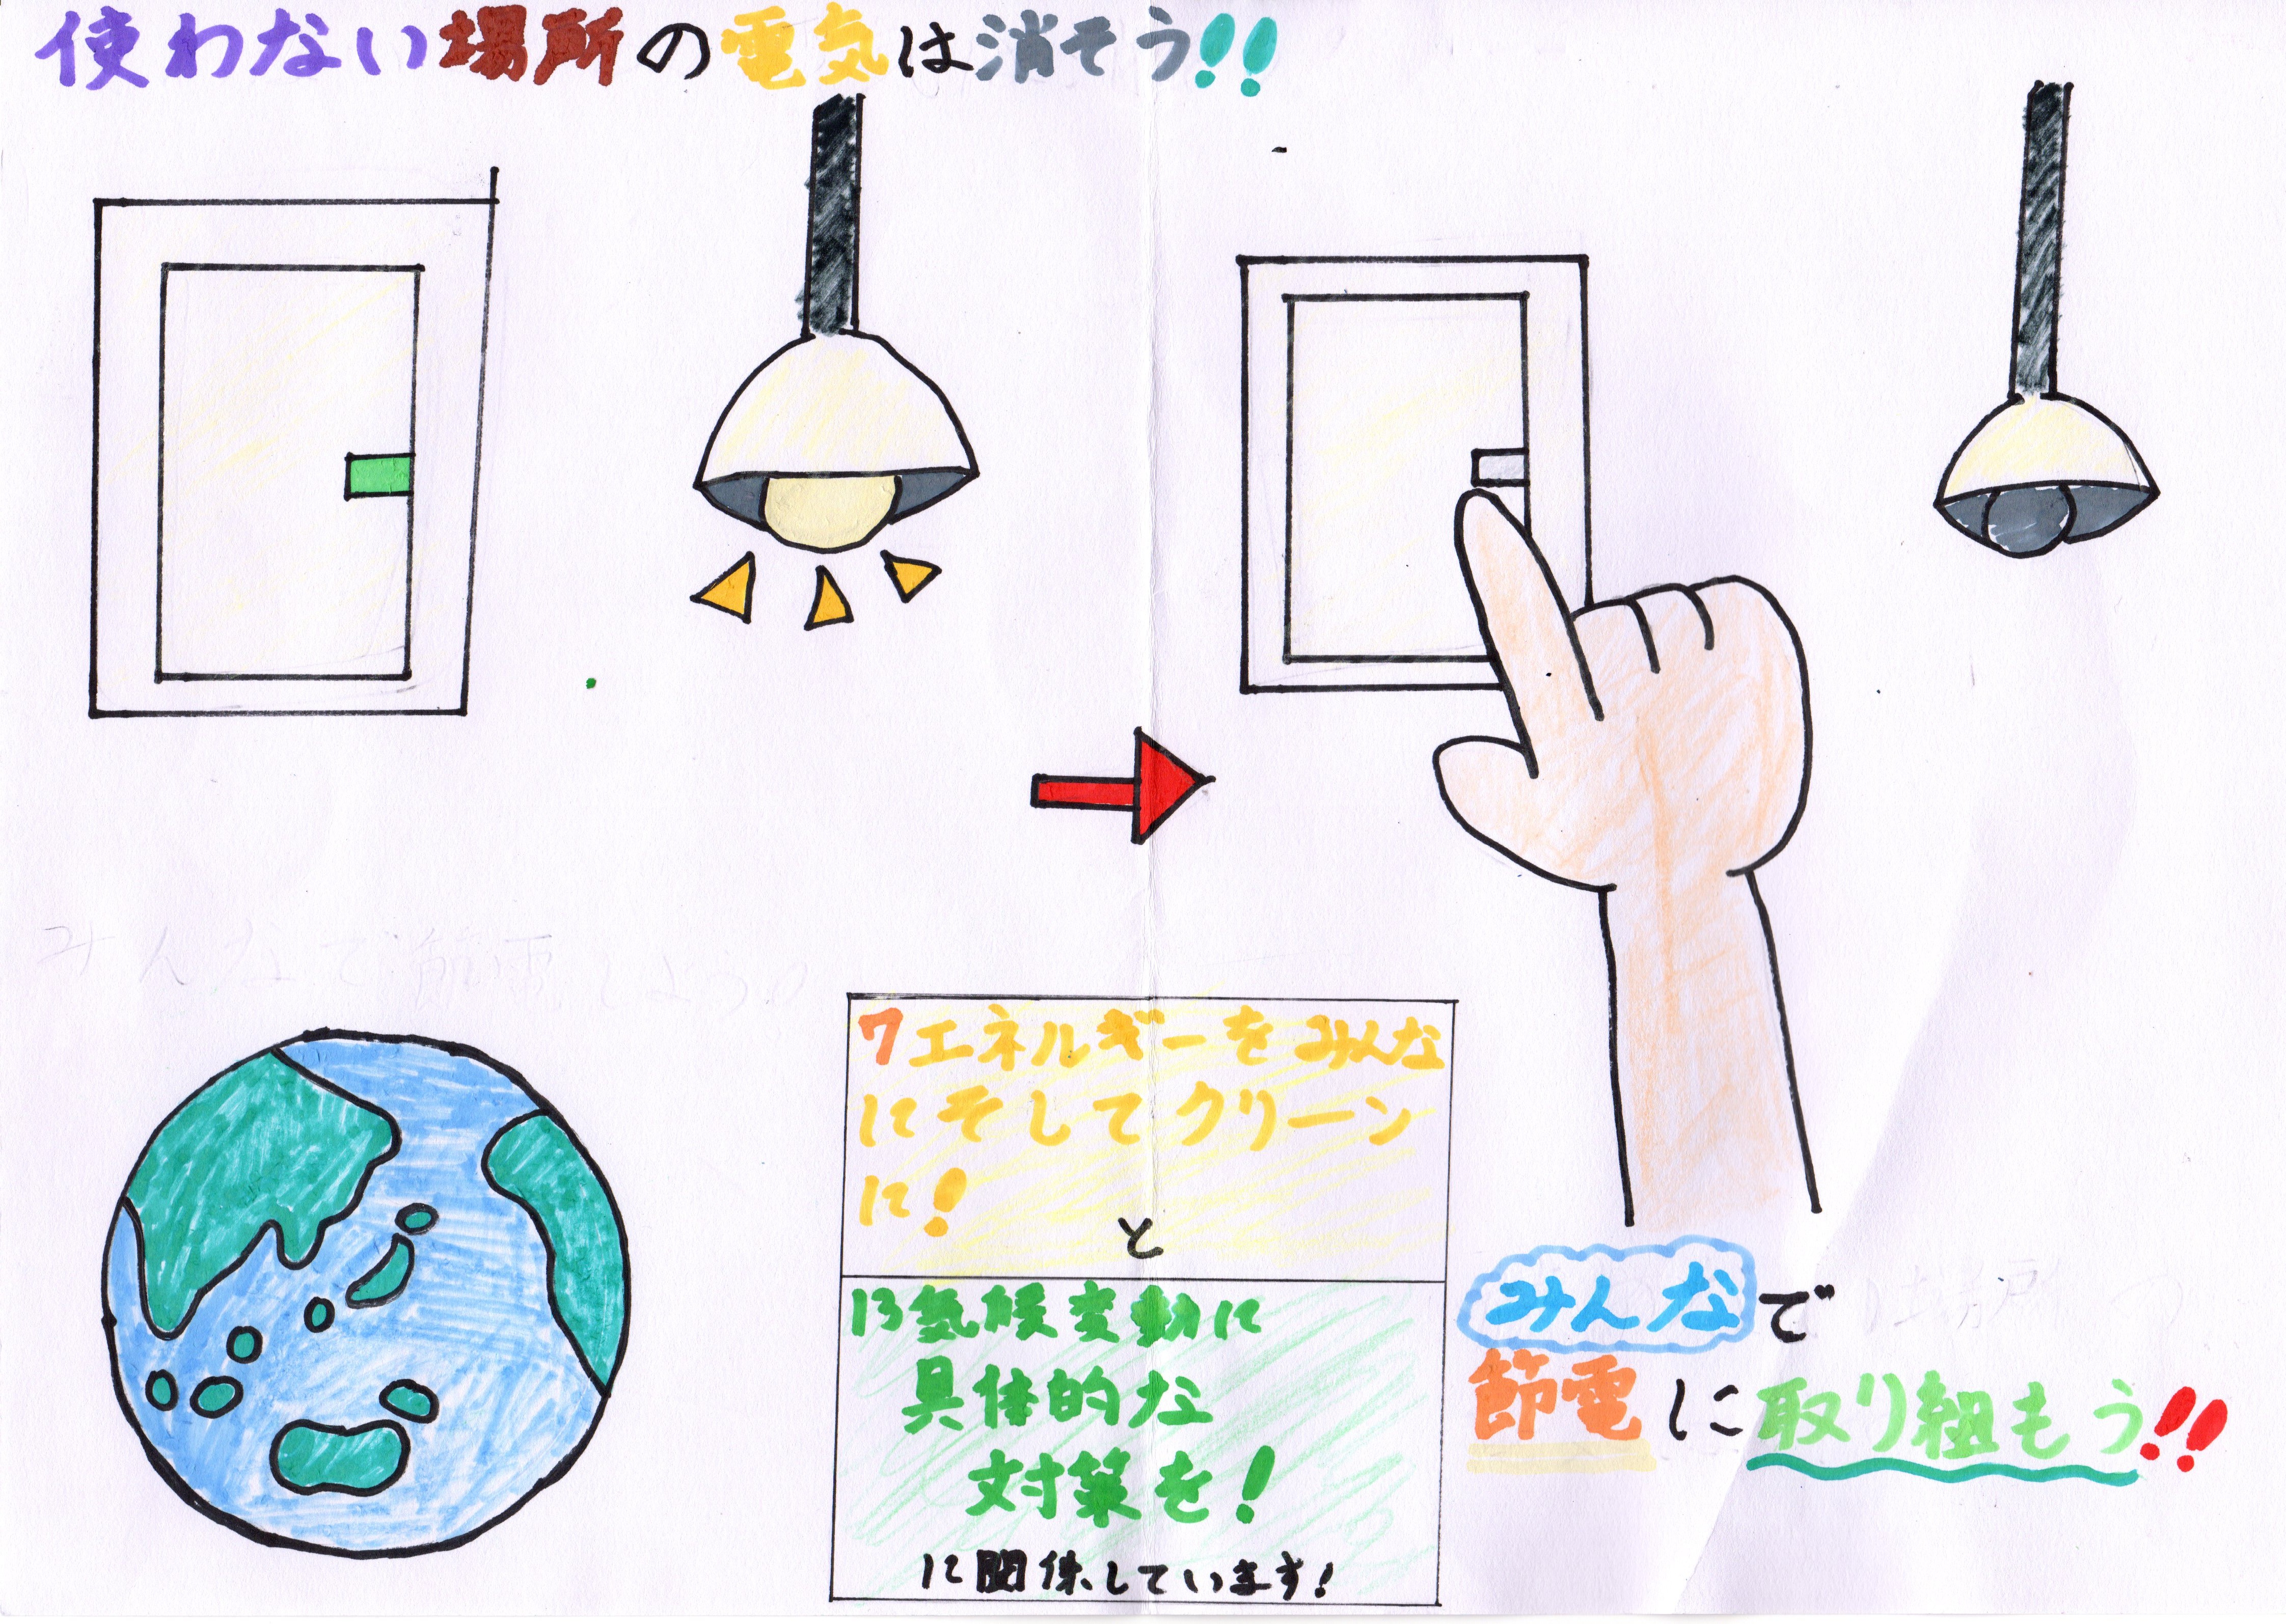 使わない場所の電気は消そう!!
みんなで節電しよう
7エネルギーをみんな
にそしてクリーン
に!
と
13気候変動に
具体的な
対策を!
に関係しています!
みんなで
節電に取り組もう!!